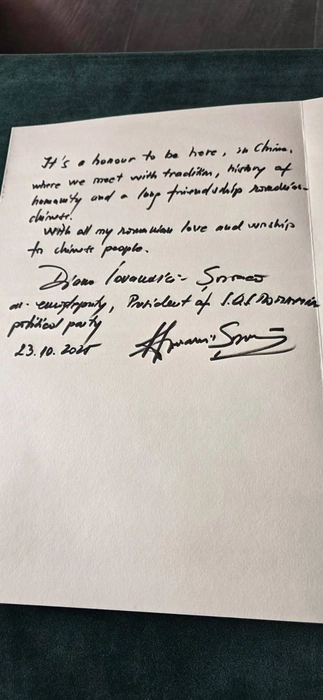 It's a honour to be here, in China,
where we meet with tradition, history of
humanity and a long friendship romanian-
chinese.
With all my romanian love and worship
to chinese people.
Diana Iovanovici-Șoșoacă
President of S.O.S Romania
political party
23.10.2025